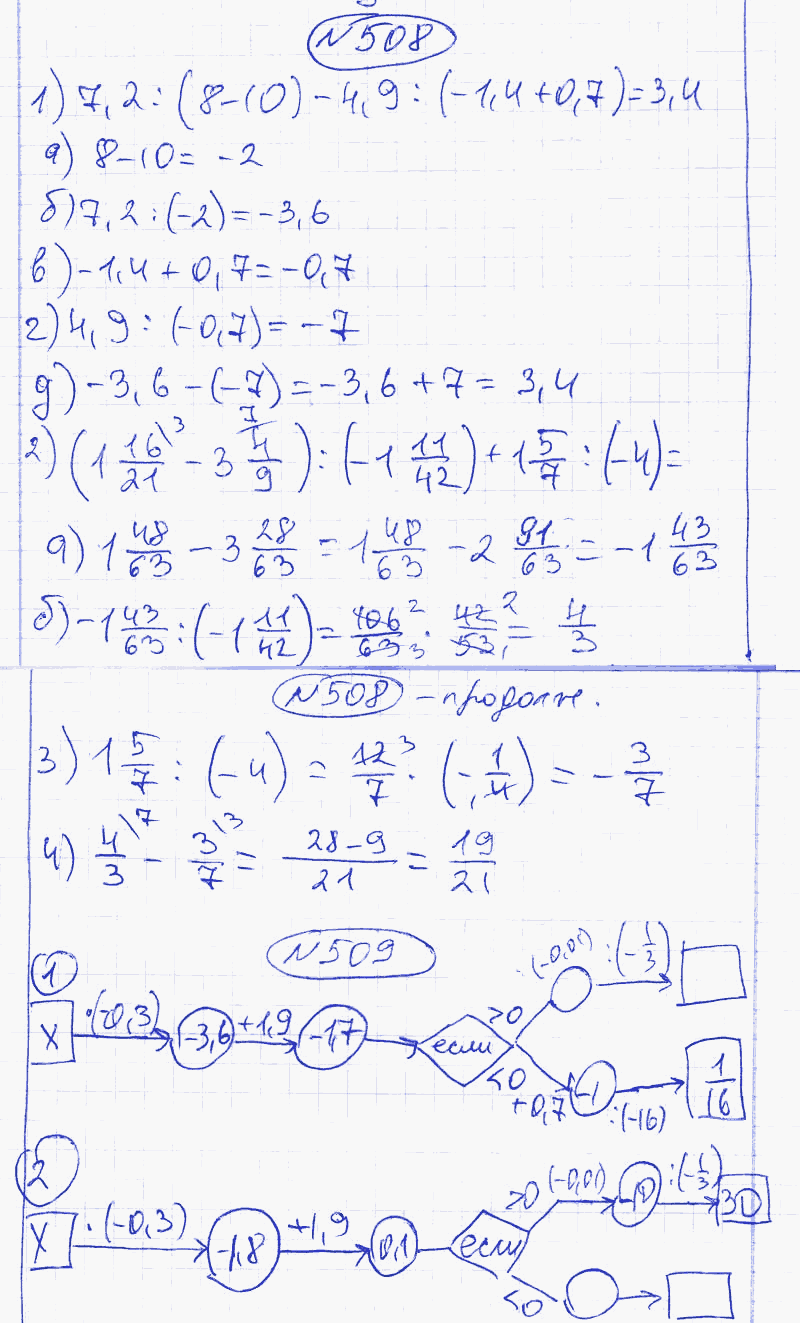 №508
1) 7,2 : (8-10) - 4,9 : (-1,4+0,7) = 3,4
а) 8-10 = -2
б) 7,2 : (-2) = -3,6
в) -1,4 + 0,7 = -0,7
г) 4,9 : (-0,7) = -7
д) -3,6 - (-7) = -3,6 + 7 = 3,4
2) (1 16/21 \3 - 3 4/9 /7) : (-1 11/42) + 1 5/7 : (-4) =
а) 1 48/63 - 3 28/63 = 1 48/63 - 2 91/63 = -1 43/63
б) -1 43/63 : (-1 11/42) = 106 2/63 3 · 42 2/53 1 = 4/3
№508 - продолже.
3) 1 5/7 : (-4) = 12 3/7 · (- 1/4) = - 3/7
4) 4/3 \7 - 3/7 \3 = 28-9/21 = 19/21
№509
1
X ·(-0,3) -3,6 +1,9 -1,7 если >0 ·(-0,01) :(-1/3)
<0 +0,7 -1 :(-16) 1/16
2
X ·(-0,3) -1,8 +1,9 0,1 если >0 (-0,01) -10 :(-1/3) 30
<0